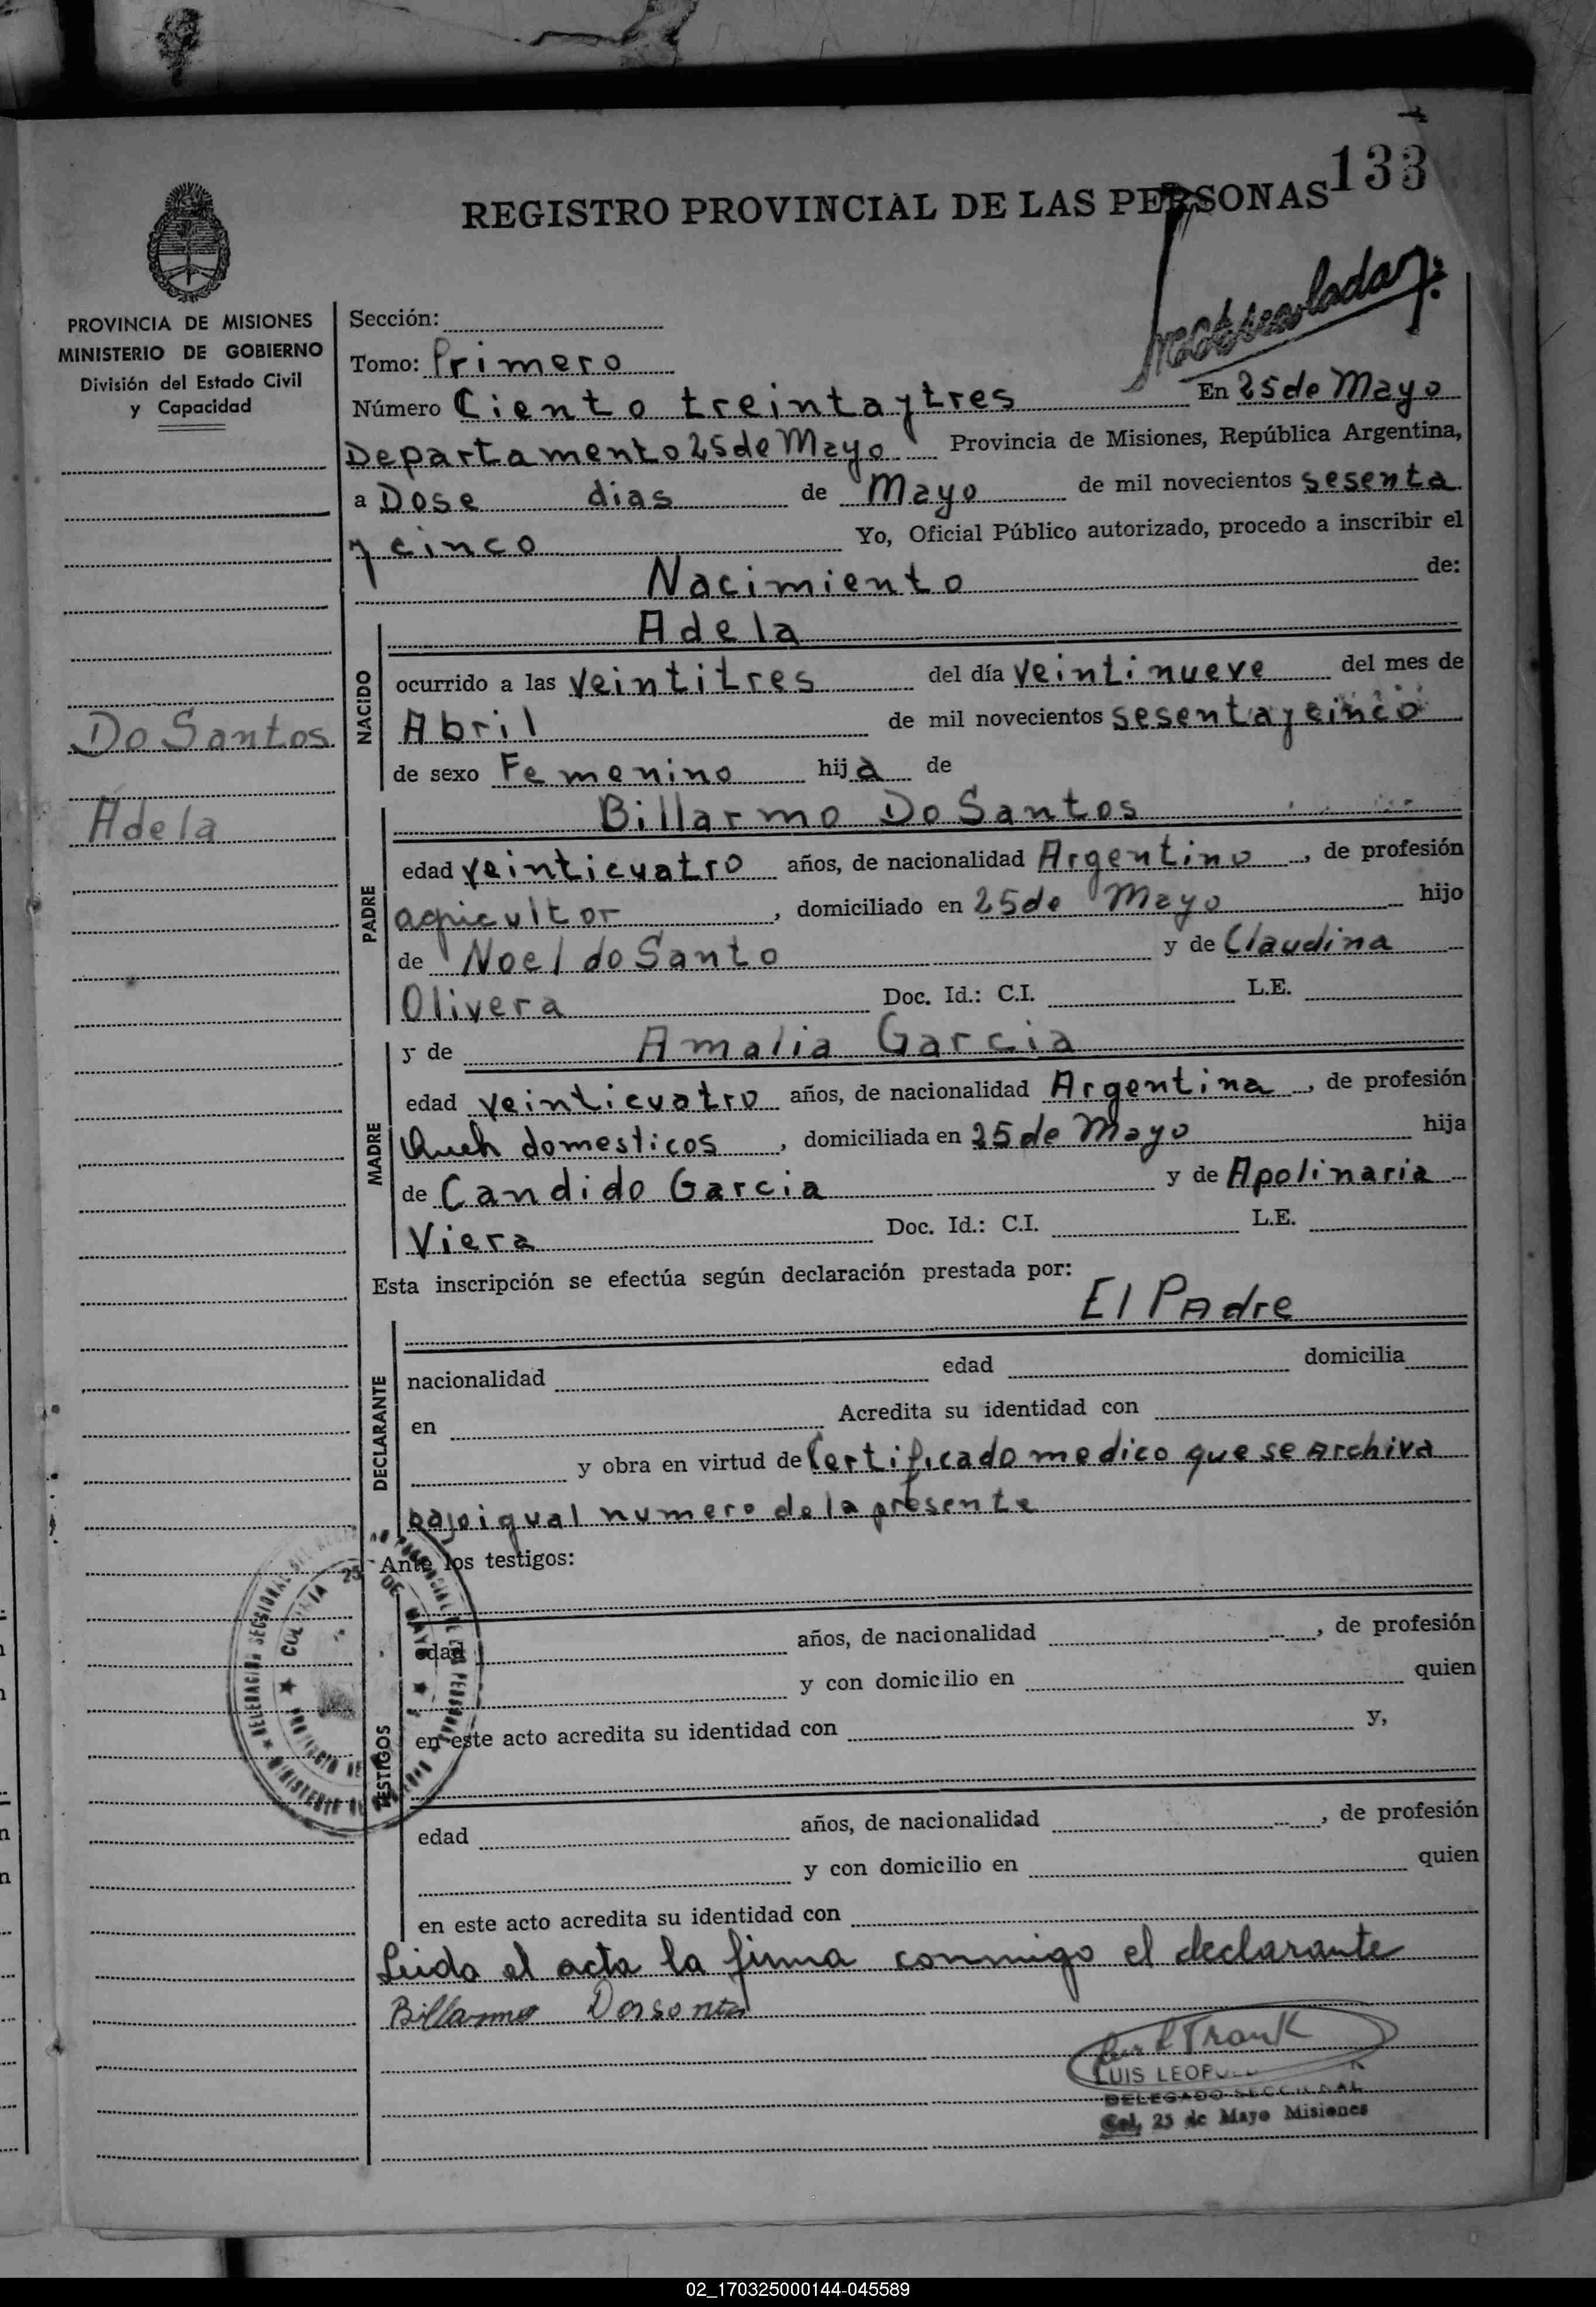 133
REGISTRO PROVINCIAL DE LAS PERSONAS
PROVINCIA DE MISIONES
MINISTERIO DE GOBIERNO
División del Estado Civil
y Capacidad
Do Santos
Adela
Sección:
Tomo: Primero
Número Ciento treinta y tres En 25 de Mayo
Departamento 25 de Mayo Provincia de Misiones, República Argentina,
a Dose dias de Mayo de mil novecientos sesenta
y cinco Yo, Oficial Público autorizado, procedo a inscribir el
Nacimiento de:
NACIDO
Adela
ocurrido a las veintitres del día veintinueve del mes de
Abril de mil novecientos sesenta y cinco
de sexo Femenino hija de
PADRE
Billarmo Do Santos
edad veinticuatro años, de nacionalidad Argentino, de profesión
agricultor, domiciliado en 25 de Mayo hijo
de Noel do Santo y de Claudina
Olivera Doc. Id.: C.I. L.E.
MADRE
y de Amalia Garcia
edad veinticuatro años, de nacionalidad Argentina, de profesión
Queh domesticos, domiciliada en 25 de Mayo hija
de Candido Garcia y de Apolinaria
Viera Doc. Id.: C.I. L.E.
Esta inscripción se efectúa según declaración prestada por:
El PAdre
DECLARANTE
nacionalidad edad domicilia
en Acredita su identidad con
y obra en virtud de Certificado medico que se Archiva
bajo igual numero de la presente
Ante los testigos:
TESTIGOS
edad años, de nacionalidad, de profesión
y con domicilio en quien
en este acto acredita su identidad con y,
edad años, de nacionalidad, de profesión
y con domicilio en quien
en este acto acredita su identidad con
Leida el acta la firma conmigo el declarante
Billarmo Dosontos
LUIS LEOPOL
DELEGADO SECCIONAL
Col. 25 de Mayo Misiones
02_170325000144-045589